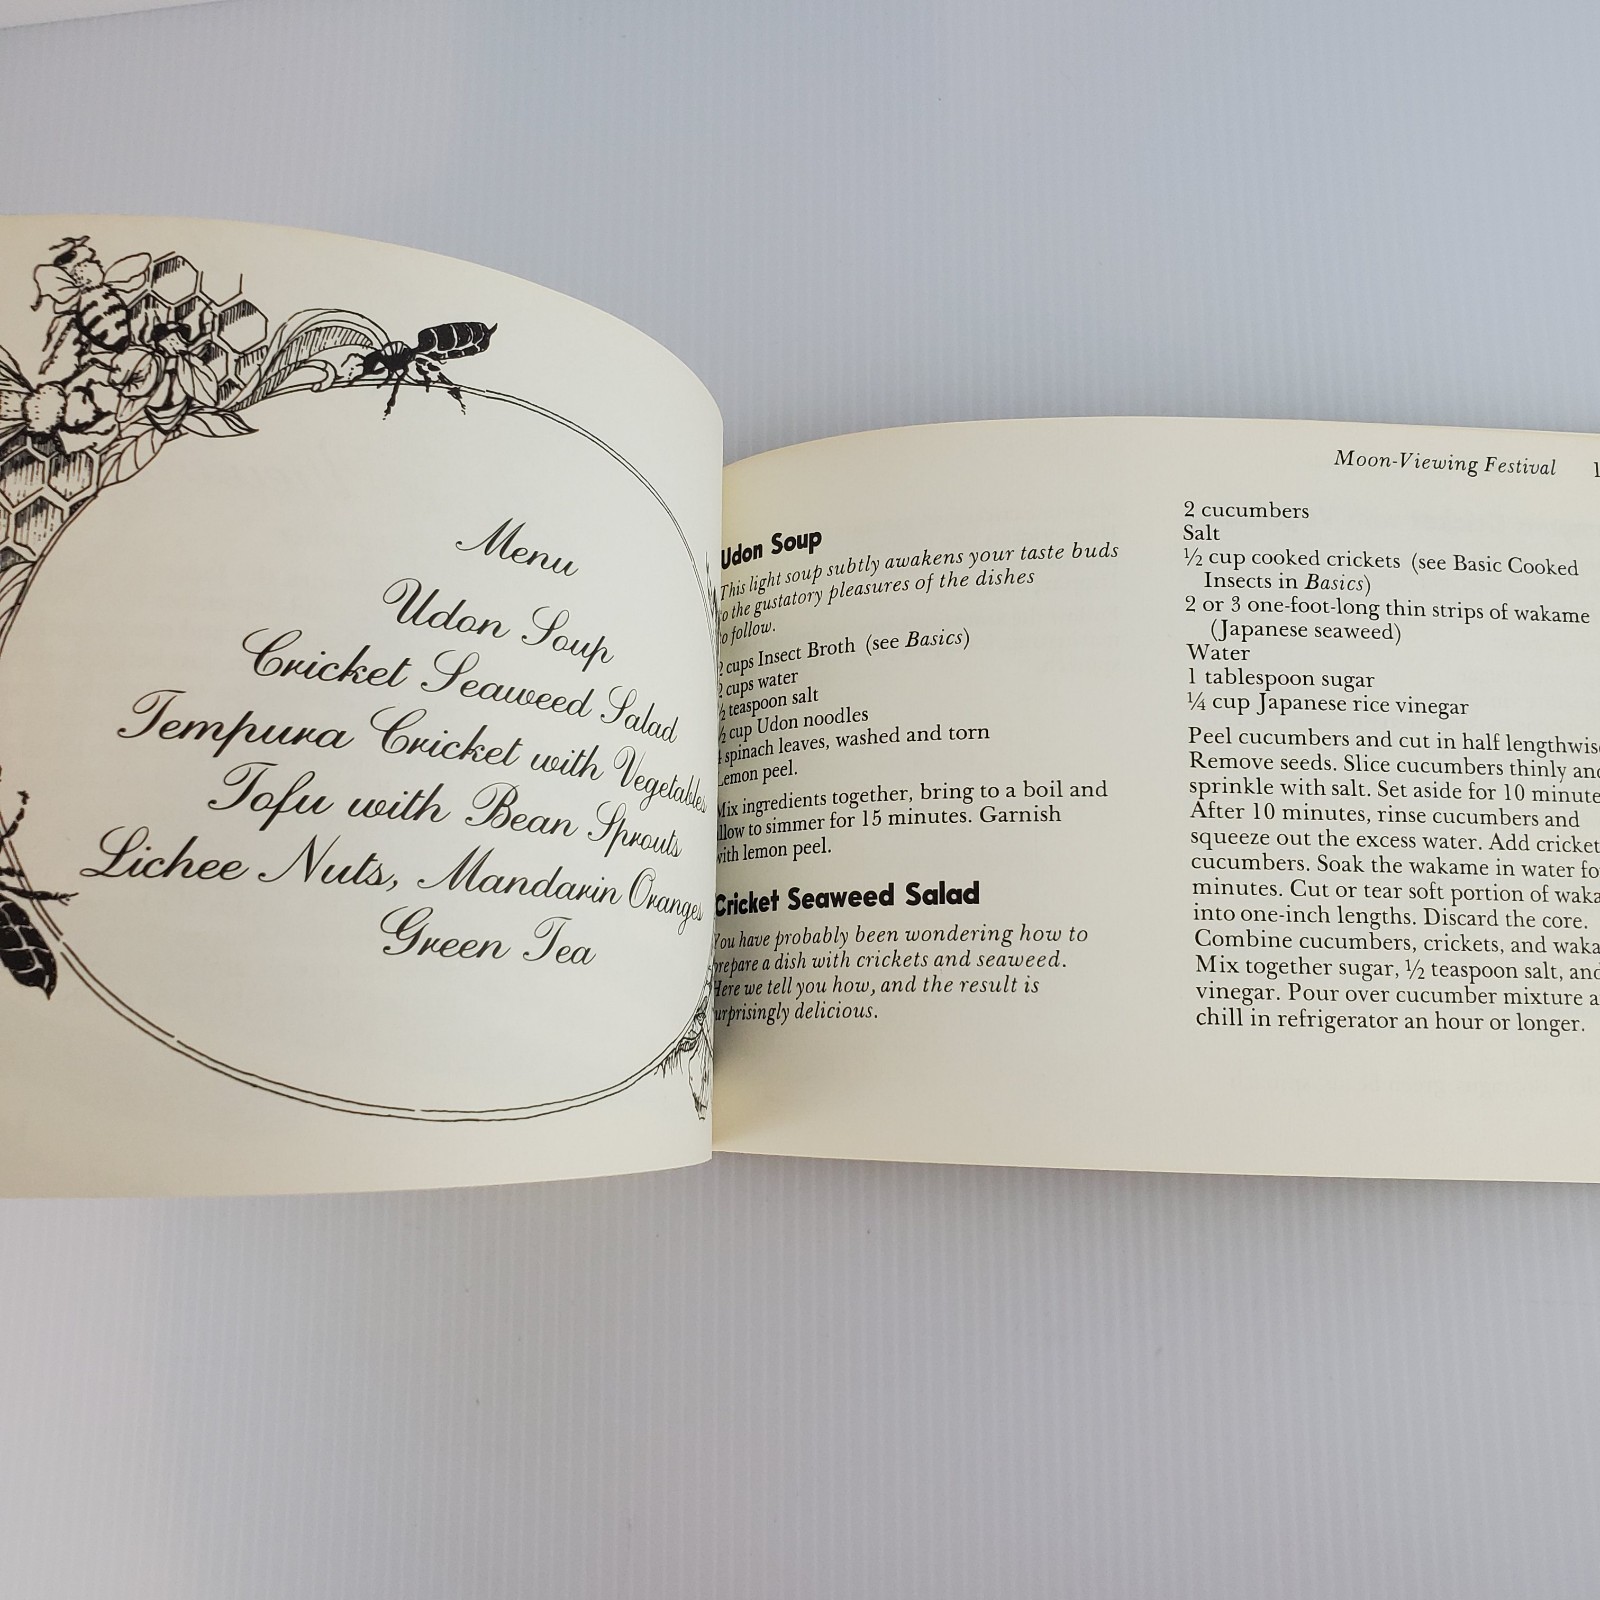 Menu
Udon Soup
Cricket Seaweed Salad
Tempura Cricket with Vegetables
Tofu with Bean Sprouts
Lichee Nuts, Mandarin Oranges
Green Tea
Moon-Viewing Festival
Udon Soup
This light soup subtly awakens your taste buds
to the gustatory pleasures of the dishes
to follow.
2 cups Insect Broth (see Basics)
2 cups water
½ teaspoon salt
½ cup Udon noodles
spinach leaves, washed and torn
Lemon peel.
Mix ingredients together, bring to a boil and
allow to simmer for 15 minutes. Garnish
with lemon peel.
Cricket Seaweed Salad
You have probably been wondering how to
prepare a dish with crickets and seaweed.
Here we tell you how, and the result is
surprisingly delicious.
2 cucumbers
Salt
½ cup cooked crickets (see Basic Cooked
Insects in Basics)
2 or 3 one-foot-long thin strips of wakame
(Japanese seaweed)
Water
1 tablespoon sugar
¼ cup Japanese rice vinegar
Peel cucumbers and cut in half lengthwise
Remove seeds. Slice cucumbers thinly and
sprinkle with salt. Set aside for 10 minute
After 10 minutes, rinse cucumbers and
squeeze out the excess water. Add cricket
cucumbers. Soak the wakame in water fo
minutes. Cut or tear soft portion of waka
into one-inch lengths. Discard the core.
Combine cucumbers, crickets, and waka
Mix together sugar, ½ teaspoon salt, and
vinegar. Pour over cucumber mixture a
chill in refrigerator an hour or longer.